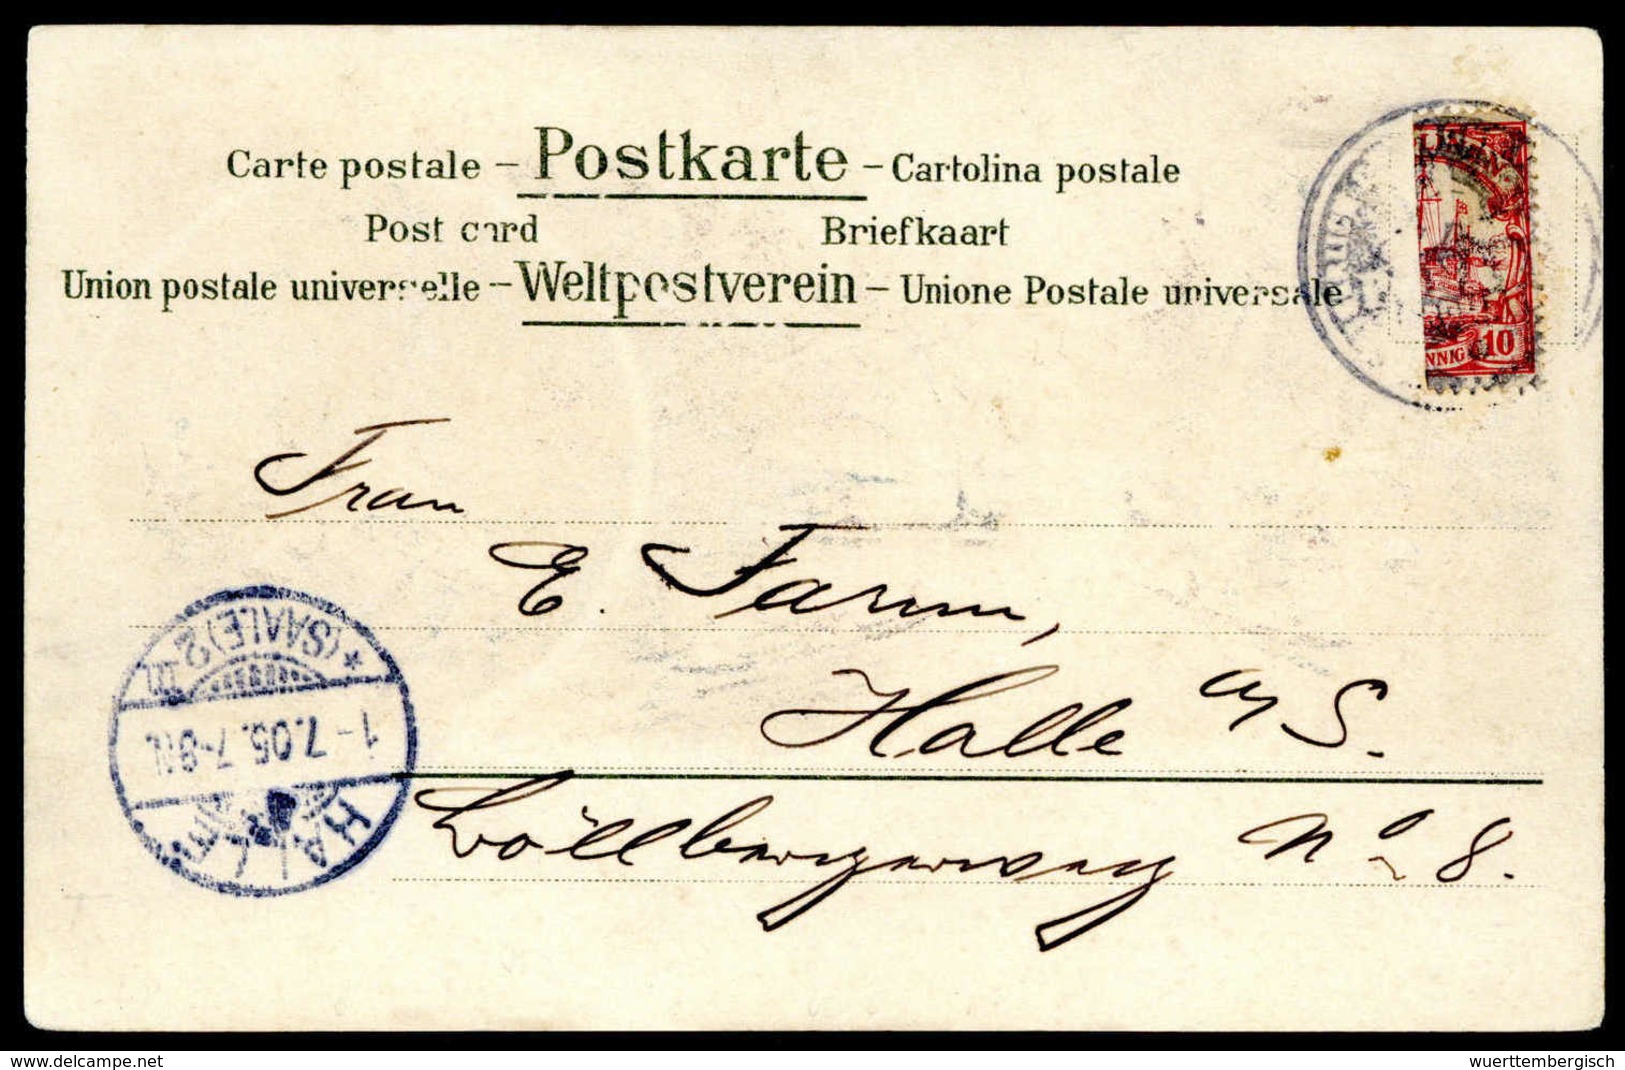 Carte postale – Postkarte – Cartolina postale
Post card Briefkaart
Union postale universelle – Weltpostverein – Unione Postale universale
NNIG 10
Frau
E. Farun,
Halle a/S.
Böllbergerweg No 8.
HALLE
1-7.05.7-8N.
* (SAALE) 2 III
delcampe.net
wuerttembergisch